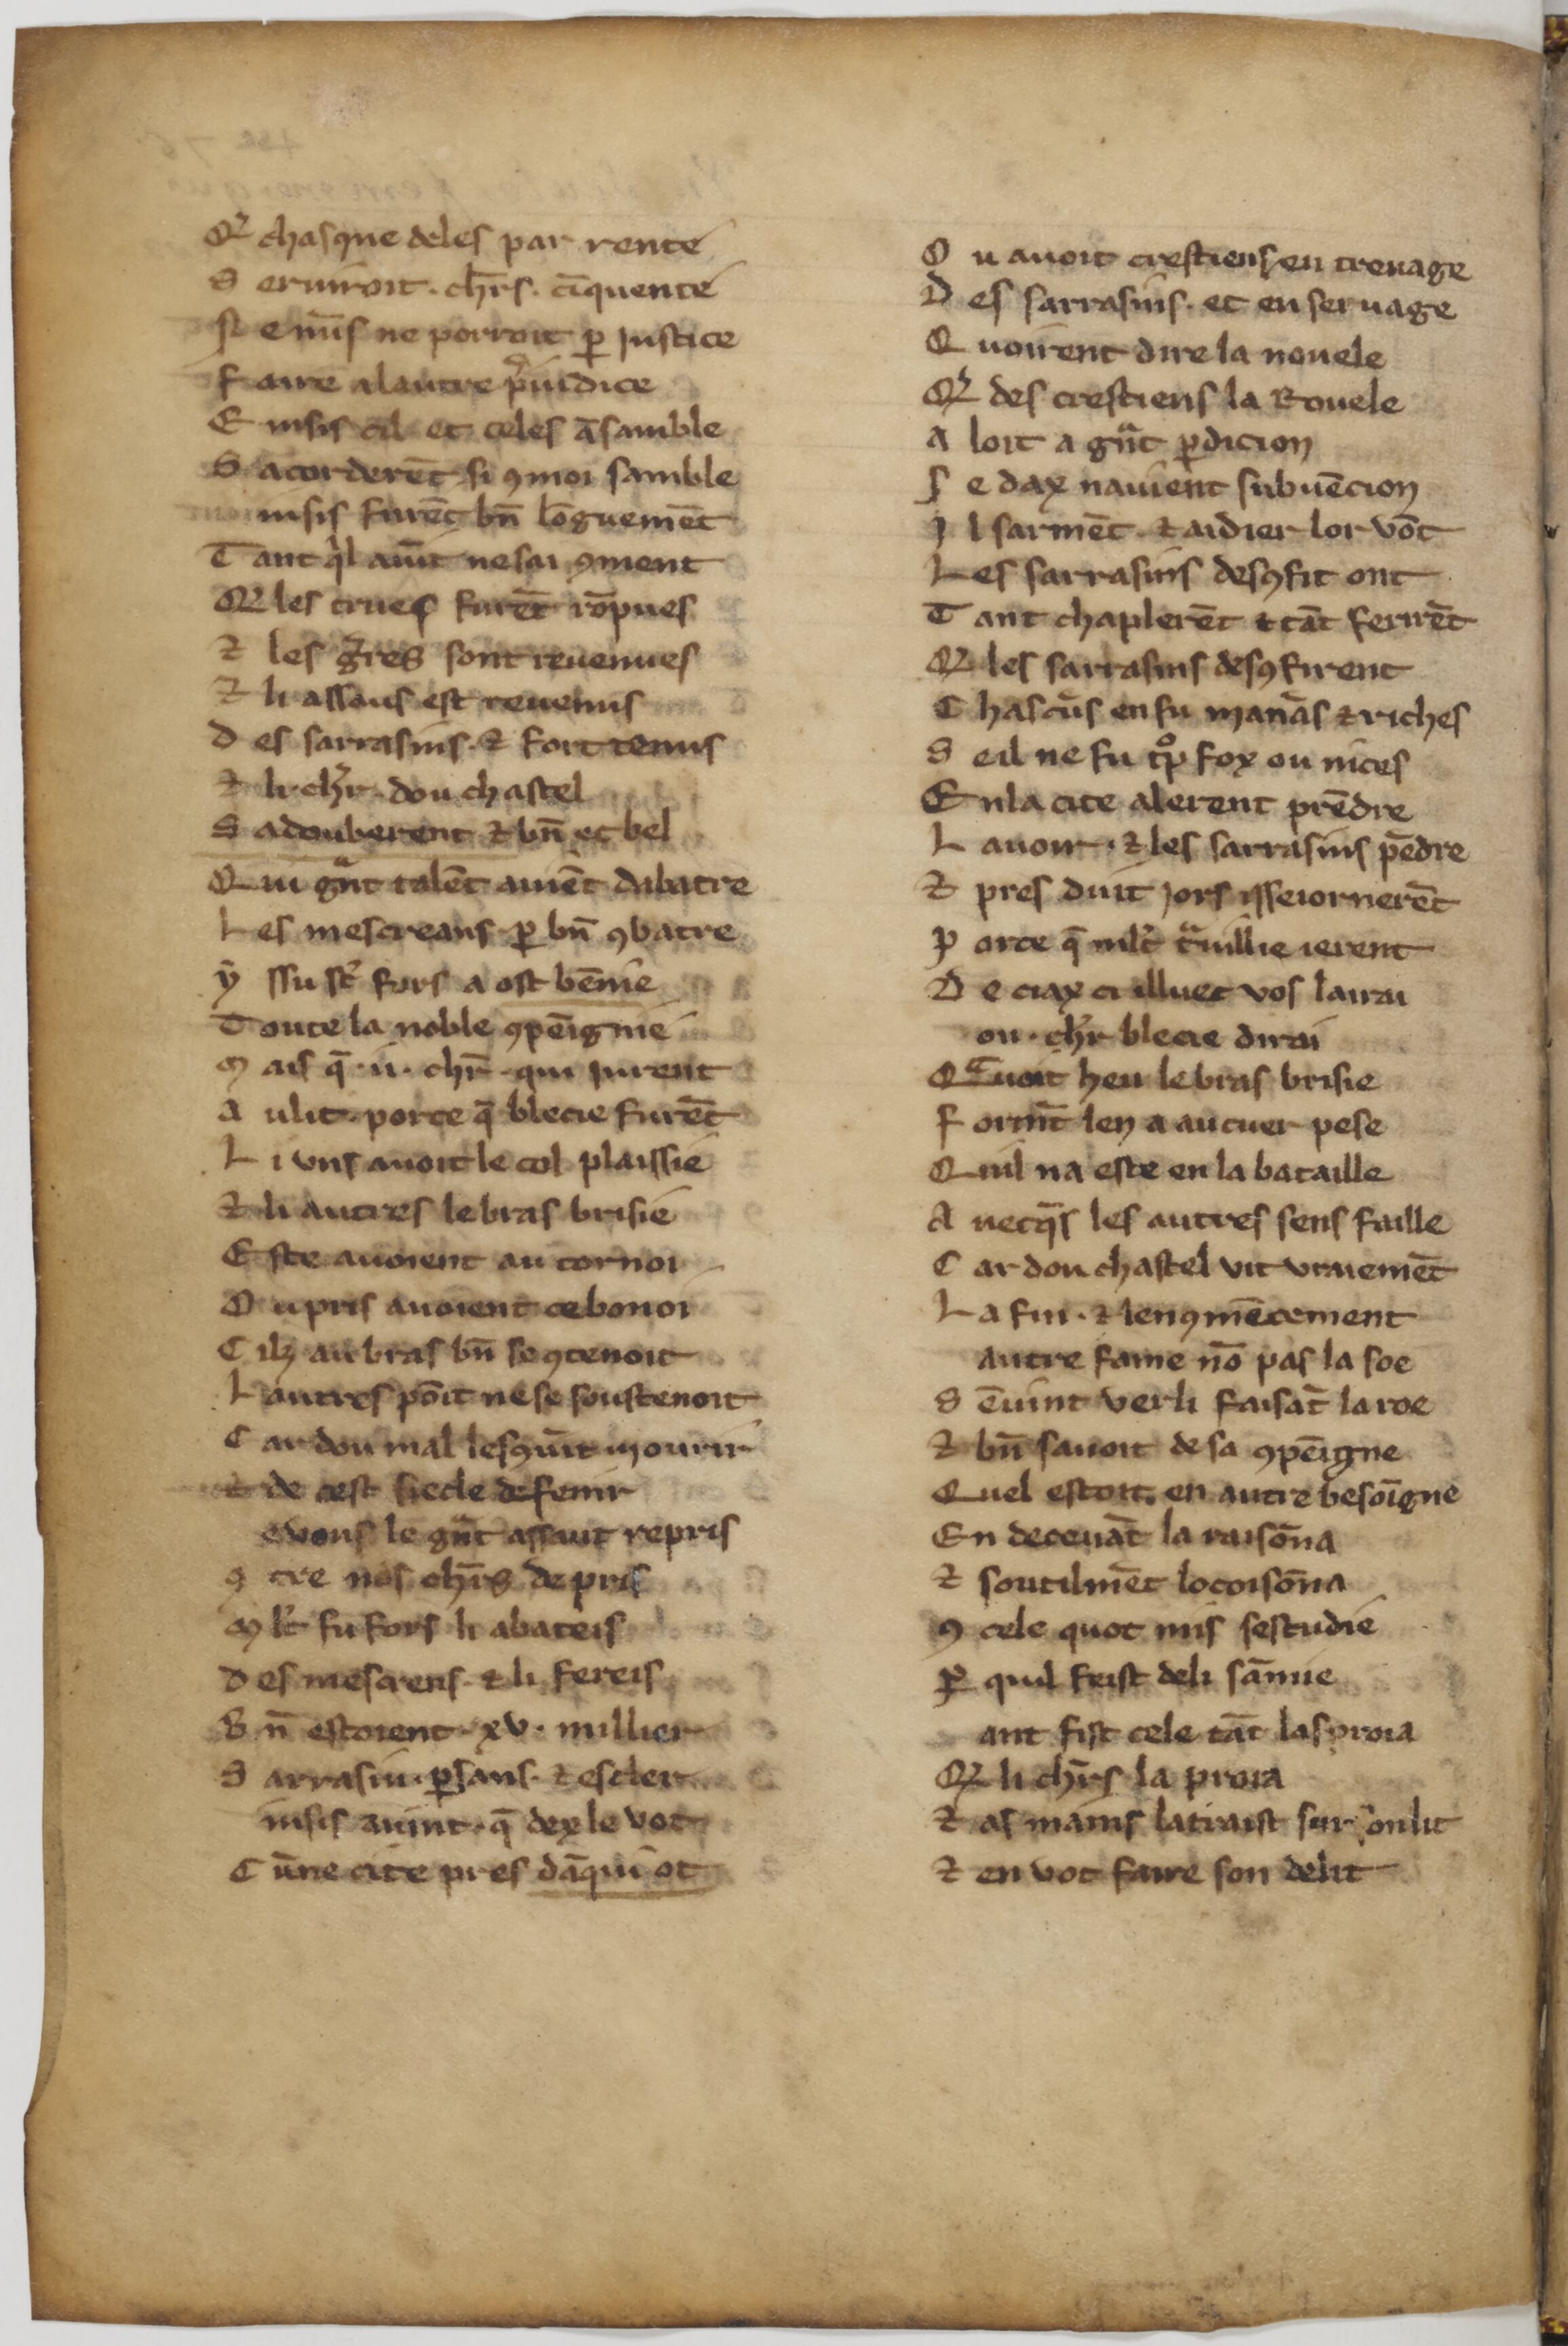 Qͥ chasque deles par rente
S eruiroit · chr̅s · cīquente
N e nus̄ ne porroit ꝑ justice
F aire alautre p̾iudice
E nisis cil et celes āsamble
S acorderēt si ꝯmoi samble
insis furēt bn̄ lōguemēt
T ant qͥl auīt nesai ꝯment
Qͥ les trues furēt rōpues
⁊ les g̾res sont reuenues
⁊ li assaus est reuenus
D es sarrasins · ⁊ fort tenus
⁊ li · chr̅ · dou chastel
S adouberent ⁊ bn̄ et bel
Q ui gͣnt talēt auiēt dabatre
L es mescreans · ꝑ bn̄ ꝯbatre
ẏ ssu st̾ fors a ost bēnie
T oute la noble ꝯpēignie
M ais q̄ · ii · chr̅ · qui iurent
A ulit · porce q̄ blecie furēt
L i uns auoit le col plaissie
⁊ li autres le bras brisie
E ste auoient au tornoi
O u pris auoient ce bonoi
C ilz au bras bn̄ se ꝯtenoit
L autres pōit ne se soustenoit
C ar dou mal lesꝯuīt mourir
⁊ de cest siecle defenir
euous le gͣnt assaut repris
ꝯ tre nos chr̅s de pris
M lt̾ fu fors li abateis
D es mescrens · ⁊ li fereis
B n̄ estoient · xv · millier
S arrasin · ꝑsans · ⁊ escler
insis auint · q̄ dex le vot
C ūne cite pres dāqui ot
O u auoit crestiens en treuage
D es sarrasins · et en seruage
Q uoirent dire la nouele
Qͥ des crestiens la Rouele
A loit a gͣnt ꝑdicion
S e dax nauient subuēcion
I l sarmēt · ⁊ aidier lor vōt
L es sarrasins desꝯfit ont
T ant chaplerēt ⁊ tāt ferirēt
Qͥ les sarrasins desꝯfirent
C hascūs en fu manās ⁊ riches
S eil ne fu tͦp fox ou nices
E nla cite alerent prēdre
L auoir · ⁊ les sarrasins pēdre
⁊ pres duit jors isseiornerēt
P orce q̄ mlt̾ tͣuillie ierent
D e ciax ci illuec vos lairai
ou · chr̅ blecie dirai
Q auoit heu le bras brisie
F ormt̄ len a au cuer pese
Q uil na este en la bataille
A uecq̄s les autres sens faille
C ar dou chastel vit vraiemēt
L a fin · ⁊ lenꝯmēcement
autre fame nō pas la soe
S ēuint verli faisāt la roe
⁊ bn̄ sauoit de sa ꝯpēigne
Q uel estoit en autre besoīgne
En deceuāt la raisōna
⁊ soutilmēt locoisōna
ꝯ cele quot mis sestudie
P̾ quil feist deli sāmie
ant fist cele tāt lasproia
Qͥ li chr̅s la proia
⁊ as mains latraist sur son lit
⁊ en vot faire son delit